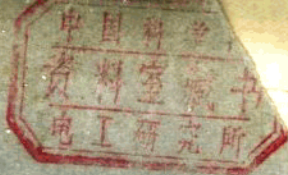 中国科学
资料室藏书
电工研究所